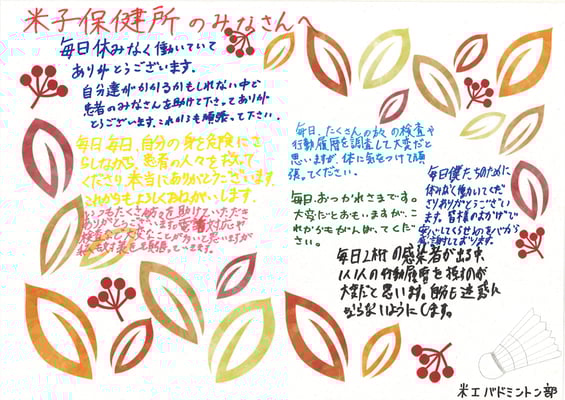 米子保健所のみなさんへ
毎日休みなく働いていて
ありがとうございます。
自分達がかかるかもしれない中で
患者のみなさんを助けて下さってありが
とうございます。これからも頑張って下さい。
毎日毎日、自分の身を危険にさ
らしながら、患者の人々を救って
くださり本当にありがとうございます。
これからもよろしくおねがいします。
いつもたくさんの方々を助けていただき
ありがとうございます。電話対応や
検査など大変なことが多いと思いますが
私たちも対策をし頑張っていきます。
毎日、たくさんの方々の検査や
行動履歴を調査して大変だと
思いますが、体に気をつけて頑
張ってください。
毎日、おつかれさまです。
大変だとおもいますが、こ
れからもがんばってくだ
さい。
毎日僕たちのために
休みなく働いてくだ
さりありがとうござい
ます。皆様のおかげで
安心してくらせ
感謝しております。
毎日2桁の感染者が出る中、
1人1人の行動履歴を探すのが
大変だと思います。自分も迷惑ん
かからないようにします。
米工バドミントン部